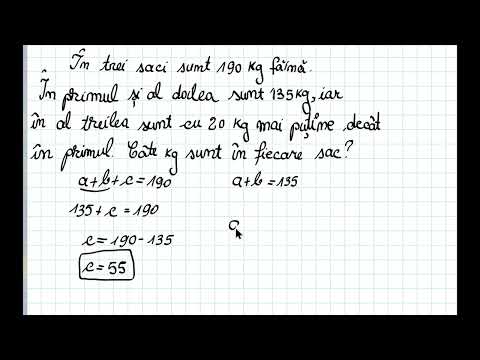 În trei saci sunt 190 kg făină.
În primul și al doilea sunt 135 kg, iar
în al treilea sunt cu 20 kg mai puține decât
în primul. Câte kg sunt în fiecare sac?
a+b+c=190 a+b=135
135+c=190
c=190-135
c=55
a